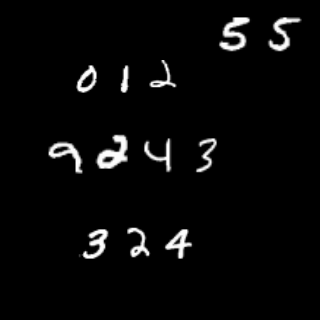 5 5
0 1 2
9 2 4 3
3 2 4